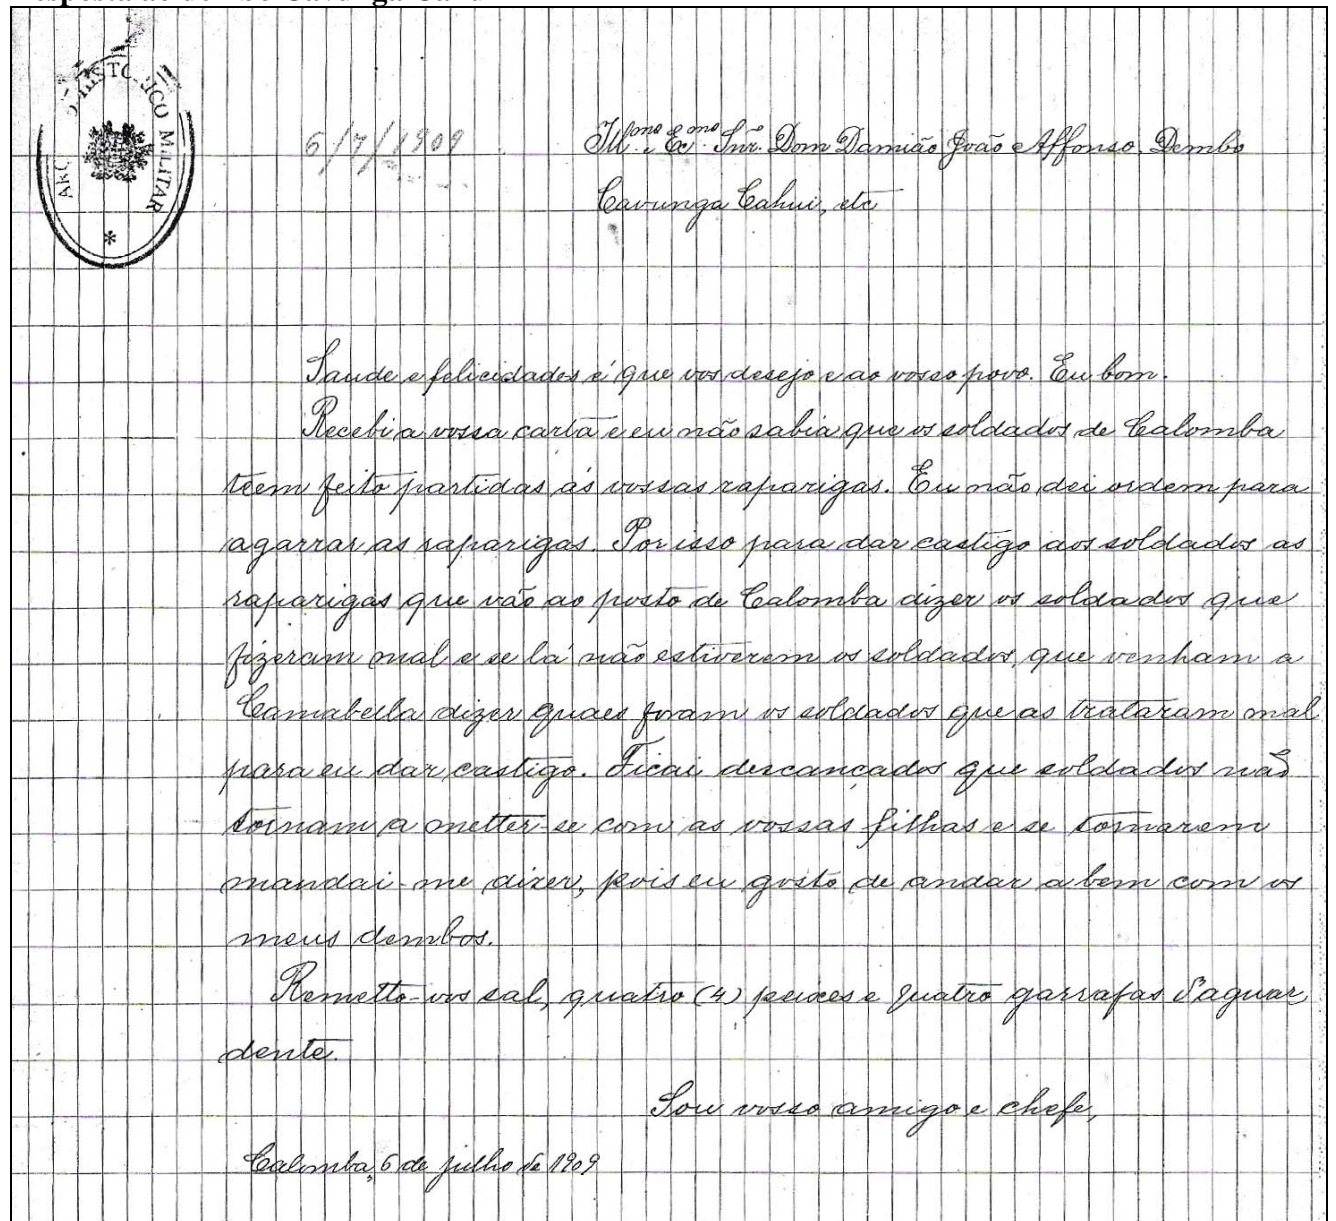 ao dembo Cavunga Cahui
ARQ HISTORICO MILITAR
*
6/7/1909
Ill.mo e Ex.mo Snr. Dom Damião João Affonso, Dembo
Cavunga Cahui, etc
Saude e felicidades é que vos desejo e ao vosso povo. Eu bom.
Recebi a vossa carta e eu não sabia que os soldados de Calomba
teem feito partidas ás vossas raparigas. Eu não dei ordem para
agarrar as raparigas. Por isso para dar castigo aos soldados as
raparigas que vão ao posto de Calomba dizer os soldados que
fizeram mal e se lá não estiverem os soldados, que venham a
Camabella dizer quaes foram os soldados que as trataram mal
para eu dar castigo. Ficai descançados que soldados não
tornam a metter-se com as vossas filhas e se tornarem
mandai-me dizer, pois eu gosto de andar a bem com os
meus dembos.
Remetto-vos sal, quatro (4) peixes e quatro garrafas d'aguar
dente.
Sou vosso amigo e chefe,
Calomba, 6 de julho de 1909